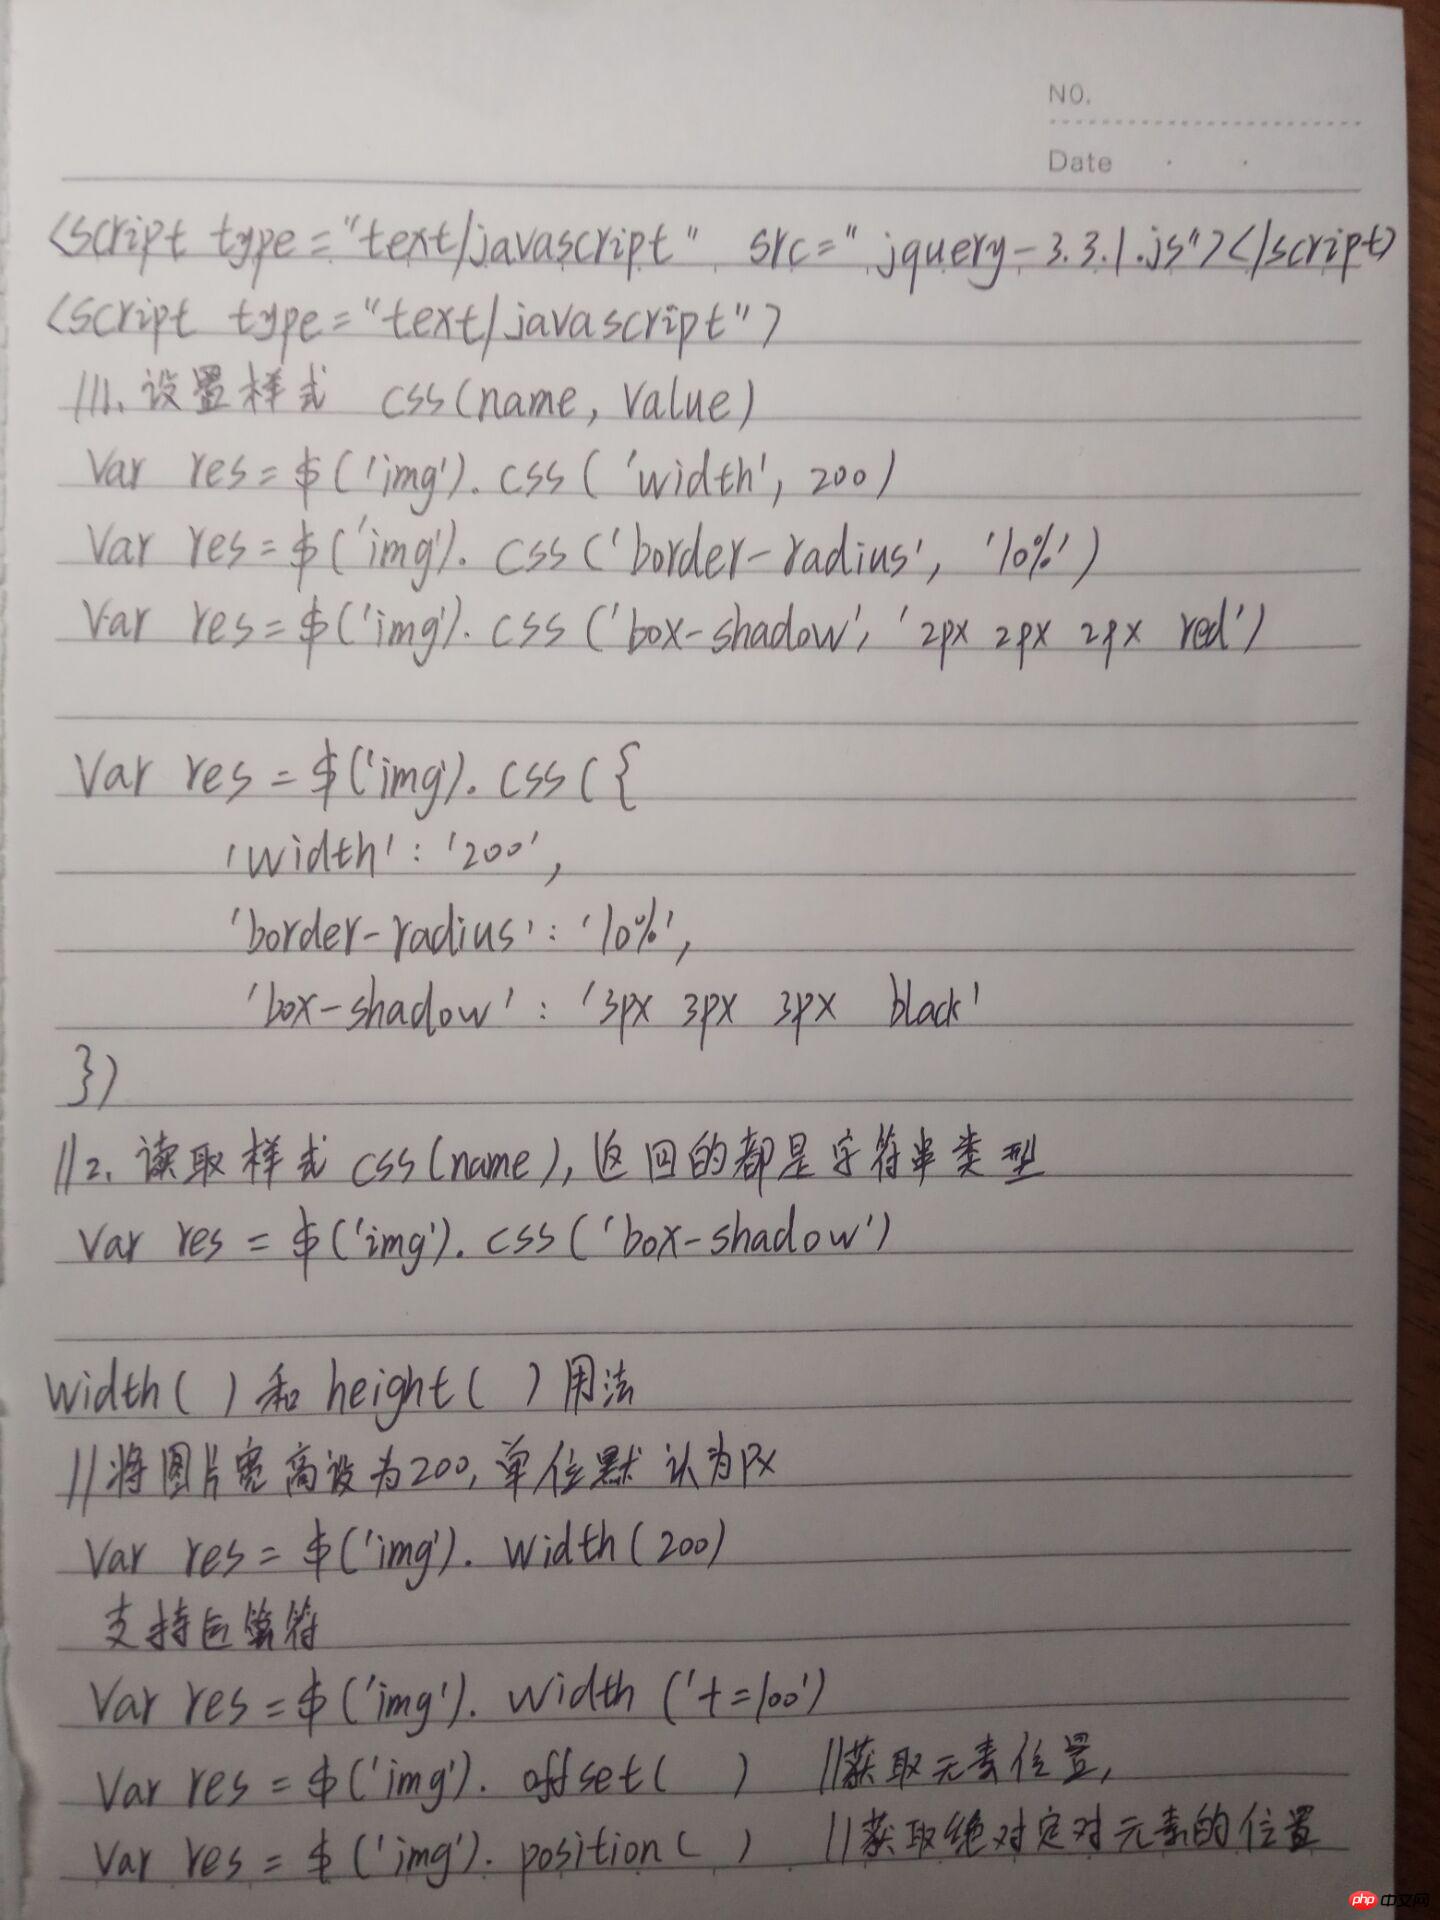 NO.
Date
<script type="text/javascript" src="jquery-3.3.1.js"></script>
<script type="text/javascript">
//1.设置样式 css(name, value)
Var res=$('img').css('width', 200)
Var res=$('img').css('border-radius', '10%')
Var res=$('img').css('box-shadow', '2px 2px 2px red')
Var res=$('img').css({
'width':'200',
'border-radius':'10%',
'box-shadow':'3px 3px 3px black'
})
//2.读取样式 css(name),返回的都是字符串类型
Var res=$('img').css('box-shadow')
width( )和height( )用法
//将图片宽高设为200,单位默认为px
Var res=$('img').width(200)
支持运算符
Var res=$('img').width('+=100')
Var res=$('img').offset( ) //获取元素位置,
Var res=$('img').position( ) //获取绝对定对元素的位置
php 中文网